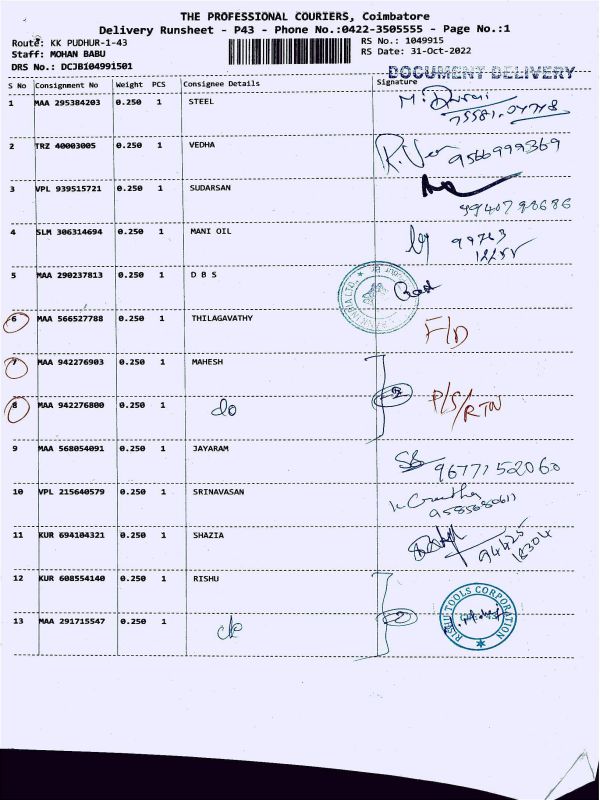 THE PROFESSIONAL COURIERS, Coimbatore
Delivery Runsheet - P43 - Phone No.:0422-3505555 - Page No.:1
Route: KK PUDHUR-1-43 RS No.: 1049915
Staff: MOHAN BABU RS Date: 31-Oct-2022
DRS No.: DCJB104991501
DOCUMENT DELIVERY
S No Consignment No Weight PCS Consignee Details Signature
1 MAA 295384203 0.250 1 STEEL
2 TRZ 40003005 0.250 1 VEDHA 9566999369
3 VPL 939515721 0.250 1 SUDARSAN 9940798686
4 SLM 306314694 0.250 1 MANI OIL
5 MAA 290237813 0.250 1 D B S
6 MAA 566527788 0.250 1 THILAGAVATHY F/D
7 MAA 942276903 0.250 1 MAHESH
8 MAA 942276800 0.250 1 do P/S/RTN
9 MAA 568054091 0.250 1 JAYARAM 9677152060
10 VPL 215640579 0.250 1 SRINAVASAN
9585680611
11 KUR 694104321 0.250 1 SHAZIA 94425
18304
12 KUR 608554140 0.250 1 RISHU
RISHI TOOLS CORPORATION
13 MAA 291715547 0.250 1 do 2